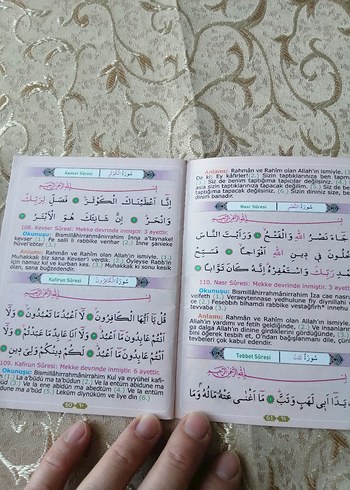 Kevser Sûresi سُورَةُ الْكَوْثَرِ
اِنَّٓا اَعْطَيْنَاكَ الْكَوْثَرَ ﴿﴾ فَصَلِّ لِرَبِّكَ
وَانْحَرْ ﴿﴾ اِنَّ شَانِئَكَ هُوَ الْاَبْتَرُ
108. Kevser Sûresi: Mekke devrinde inmiştir. 3 ayettir.
Okunuşu: Bismillâhirrahmânirrahîm İnna a'taynakel
kevser (1.) Fe salli li rabbike venhar (2.) İnne şanieke
hüvel'ebter (3.)
Rahmân ve Rahîm olan Allah'ın ismiyle.
Muhakkak biz sana Kevser'i verdik.
için namaz kıl ve kurban kes. (3.) Muhakkak ki sonu kesik
olan, sana buğzedendir.
Kafirun Sûresi سُورَةُ الْكَافِرُونَ
قُلْ يَٓا اَيُّهَا الْكَافِرُونَ ﴿﴾ لَٓا اَعْبُدُ مَا تَعْبُدُونَ ﴿﴾ وَلَٓا
اَنْتُمْ عَابِدُونَ مَٓا اَعْبُدُ ﴿﴾ وَلَٓا اَنَا۬ عَابِدٌ مَا عَبَدْتُمْ ﴿﴾ وَلَٓا
اَنْتُمْ عَابِدُونَ مَٓا اَعْبُدُ ﴿﴾ لَكُمْ دِينُكُمْ وَلِيَ دِينِ
109. Kafirun Sûresi: Mekke devrinde inmiştir. 6 ayettir.
Okunuşu: Bismillâhirrahmânirrahîm Kul ya eyyühel kafi-
run (1.) La a'büdü ma ta'büdun (2.) Ve la entüm abidune
ma a'büd (3.) Ve la ene abidün ma abedtüm (4.) Ve la entüm
abidune ma a'büd (5.) Leküm dinüküm ve liye din (6.)
60
Anlamı: Rahmân ve Rahîm olan Allah'ın ismiyle.
De ki: Ey kâfirler! (2.) Sizin taptıklarınıza ben tapmam.
Siz de benim taptığıma tapıcılar değilsiniz. (4.)
asla sizin taptıklarınıza tapacak değilim. (5.) Siz de benim
taptığıma tapacak değilsiniz. (6.) Sizin dininiz size, benim
dinim banadır.
Nasr Sûresi سُورَةُ النَّصْرِ
جَٓاءَ نَصْرُ اللّٰهِ وَالْفَتْحُ ﴿﴾ وَرَاَيْتَ النَّاسَ
يَدْخُلُونَ فِي دِينِ اللّٰهِ اَفْوَاجًا ﴿﴾ فَسَبِّحْ
بِحَمْدِ رَبِّكَ وَاسْتَغْفِرْهُ اِنَّهُ كَانَ تَوَّابًا
110. Nasr Sûresi: Mekke devrinde inmiştir. 3
Okunuşu: Bismillâhirrahmânirrahîm İza cae nasrullahi
velfeth (1.) Veraeytennase yedhulune fiy diynillahi
(2.) Fesebbih bihamdi rabbike vestağfirhü innehu
tevvaba (3.)
Anlamı: Rahmân ve Rahîm olan Allah'ın ismiyle.
Allah'ın yardımı ve fetih geldiğinde, (2.) Ve insanların
dalga dalga Allah'ın dinine girdiklerini gördüğünde,
O'ndan bağışlanmanı dile, çünkü
tevbeleri çok kabul edendir.
Tebbet Sûresi
تَبَّتْ يَدَٓا اَبِي لَهَبٍ وَتَبَّ ﴿﴾ مَٓا اَغْنٰى عَنْهُ مَالُهُ وَمَا
61